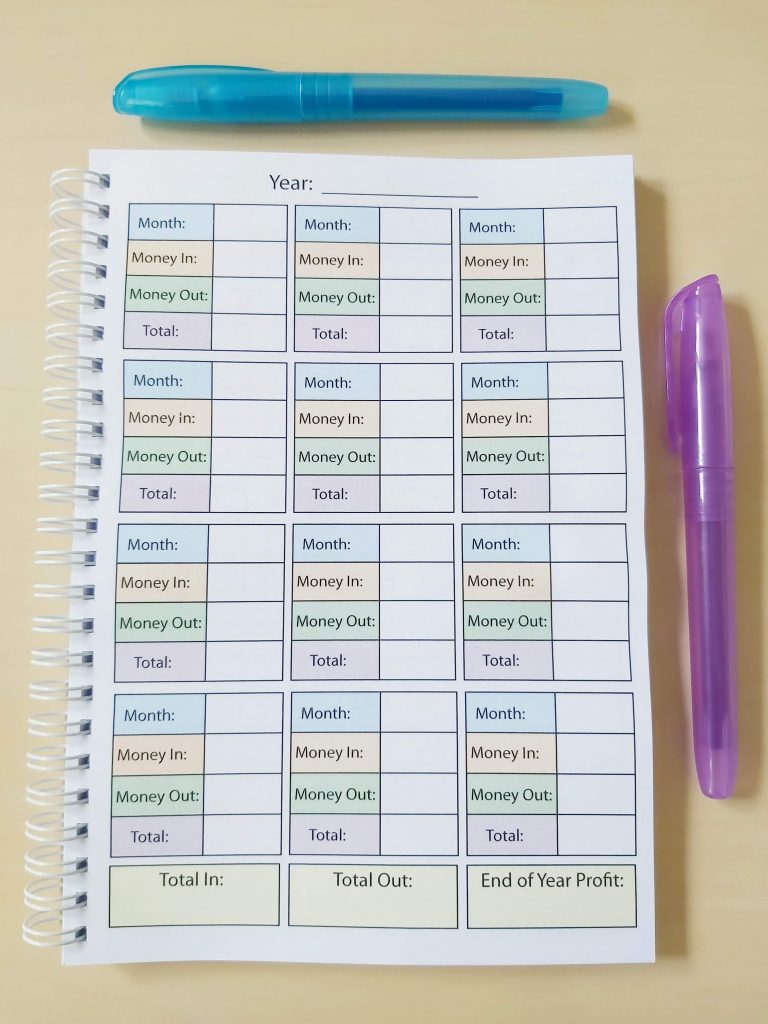 Year: ____________
Month: Month: Month:
Money In: Money In: Money In:
Money Out: Money Out: Money Out:
Total: Total: Total:
Month: Month: Month:
Money In: Money In: Money In:
Money Out: Money Out: Money Out:
Total: Total: Total:
Month: Month: Month:
Money In: Money In: Money In:
Money Out: Money Out: Money Out:
Total: Total: Total:
Month: Month: Month:
Money In: Money In: Money In:
Money Out: Money Out: Money Out:
Total: Total: Total:
Total In: Total Out: End of Year Profit: